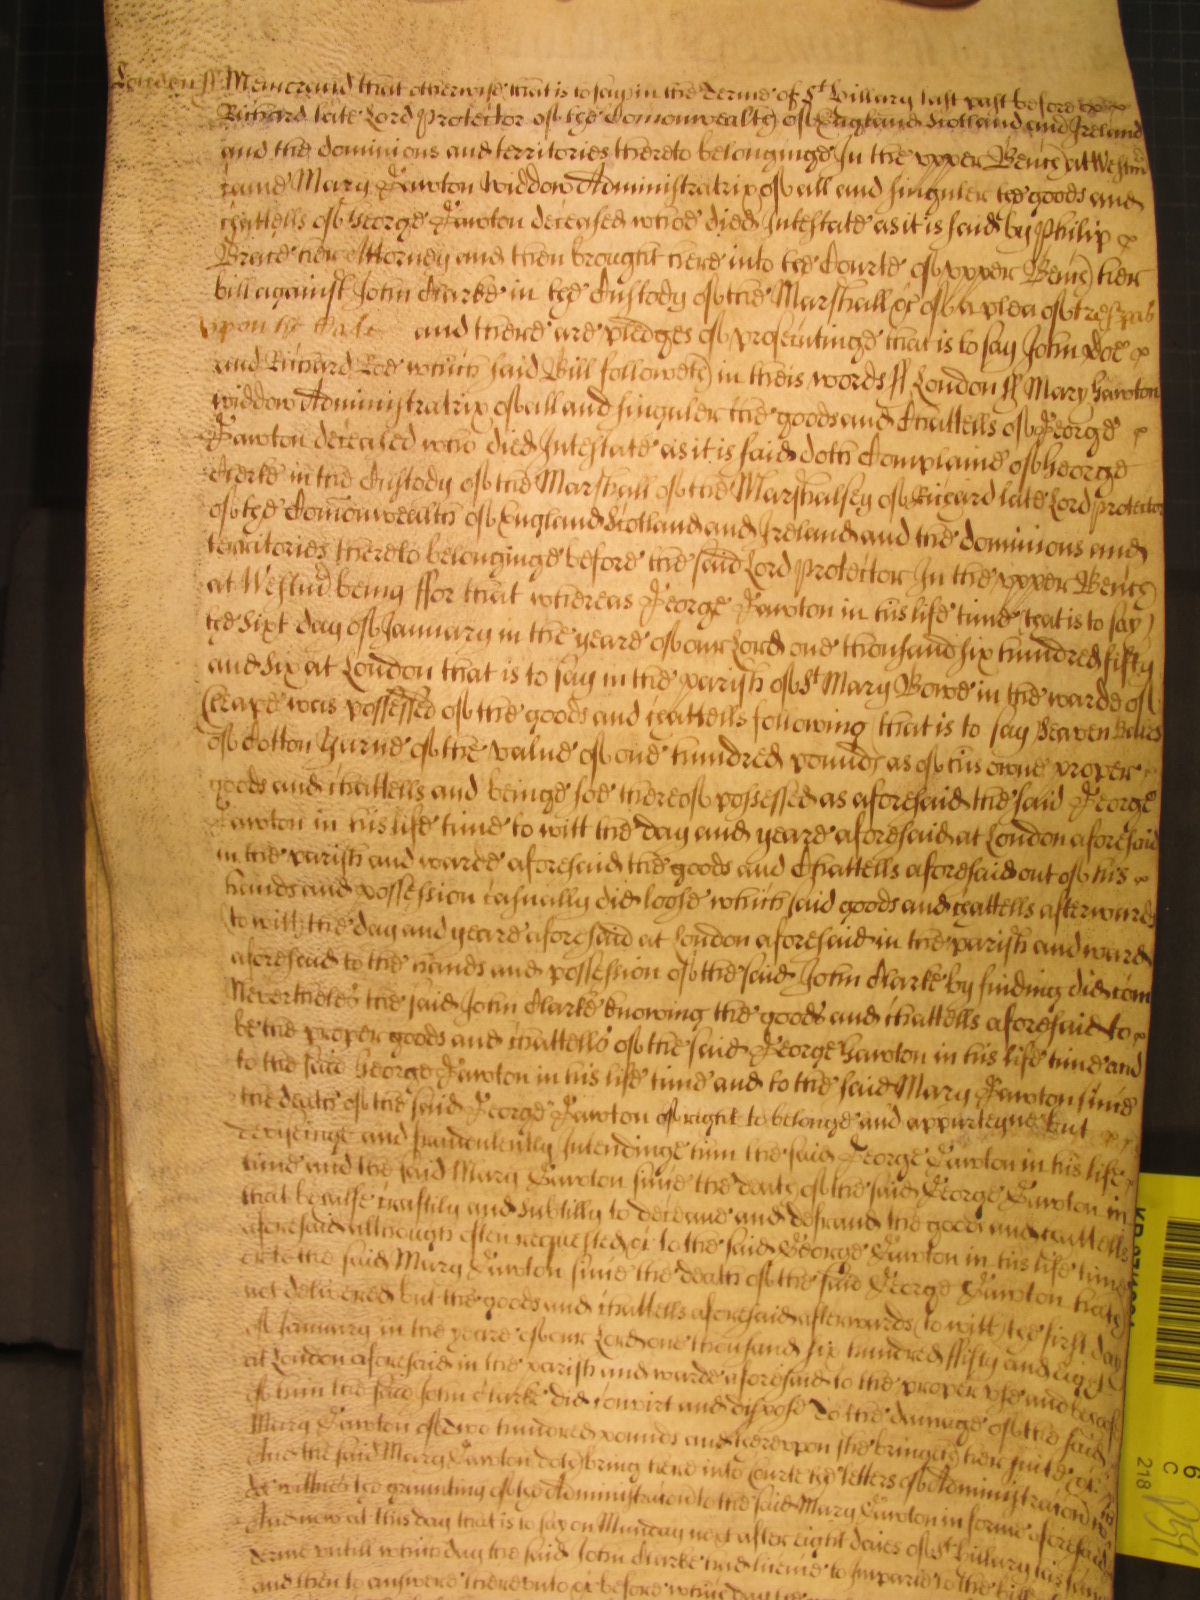 London ss Memorand that otherwise that is to say in the Terme of St Hillary last past before
Richard late Lord Protector of the Comonwealth of England Scotland and Ireland
and the dominions and territories thereto belonginge In the upper Bench at Westmr
came Mary Hawton widdow Administratrix of all and singuler the goods and
chattells of George Hawton deceased whoe died Intestate as it is said by Philip
her Attorney and then brought here into the Courte of upper Bench her
bill against John Clarke in the Custody of the Marshall &c of a plea of trespas
upon the Case and there are pledges of prosecutinge that is to say John Doe
and Richard Roe which said Bill followeth in theis words ss London ss Mary Hawton
widdow Administratrix of all and singuler the goods and Chattells of George
Hawton deceased who died Intestate as it is said doth Complaine of George
Clerke in the Custody of the Marshall of the Marshalsey of Richard late Lord Protector
of the Comonwealth of England Scotland and Ireland and the dominions and
territories thereto belonginge before the said Lord Protector In the upper Bench
at Westmr being ffor that whereas George Hawton in his life time that is to say
the Sixt day of January in the yeare of our Lord one thousand six hundred fifty
and six at London that is to say in the parish of St Mary Bowe in the warde of
Cheape was possessed of the goods and chattells following that is to say Seaven Bales
of Cotton Yarne of the value of one hundred pounds as of his owne proper
goods and chattells and beinge soe thereof possessed as aforesaid the said George
Hawton in his life time to witt the day and yeare aforesaid at London aforesaid
in the parish and warde aforesaid the goods and Chattells aforesaid out of his
hands and possession casually did loose which said goods and chattells afterwards
to witt the day and yeare aforesaid at London aforesaid in the parish and ward
aforesaid to the hands and possession of the said John Clarke by finding did com
Neverthelес the said John Clarke knowing the goods and chattells aforesaid to
be the proper goods and chattells of the said George Hawton in his life time and
to the said George Hawton in his life time and to the said Mary Hawton since
the death of the said George Hawton of right to belonge and apperteyne but
deviseinge and fraudulently Intendinge him the said George Hawton in his life
time and the said Mary Hawton since the death of the said George Hawton in
that behalfe craftily and subtilly to deceave and defraud the goods and chattells
aforesaid although often requested &c to the said George Hawton in his life time
or to the said Mary Hawton since the death of the said George Hawton hath
not delivered but the goods and chattells aforesaid afterwards (to witt) the first day
of January in the yeare of our Lord one thousand six hundred ffifty and eight
at London aforesaid in the parish and warde aforesaid to the proper use and behoofe
of him the said John Clarke did convirt and dispose To the damage of the said
Mary Hawton of two hundred pounds and thereupon she bringeth her suite &c
And the said Mary Hawton doth bring here into Courte the letters of Administracion
the graunting of the Administracion to the said Mary Hawton in forme aforesaid
And now at this day that is to say on Munday next after eight daies of St Hillary this same
Terme untill which day the said John Clarke had licence to Imparle to the bill
and then to answere thereunto &c before